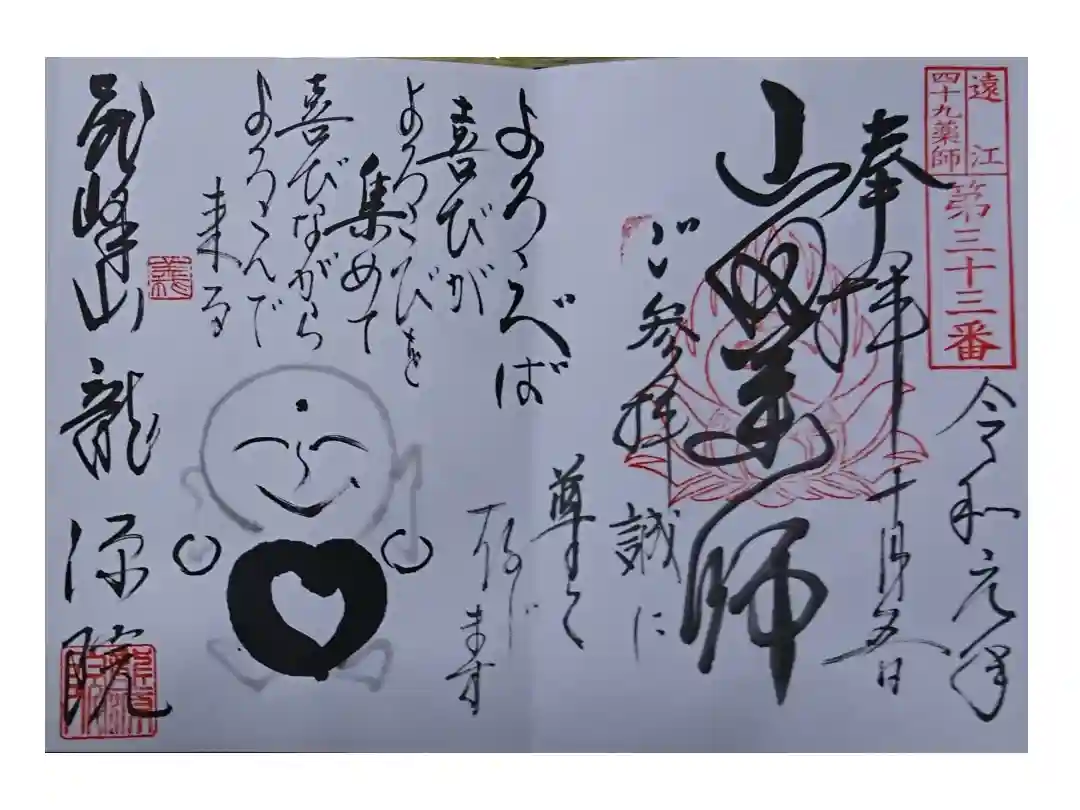 遠江
四十九薬師
第三十三番
令和元年
奉拝 十月五日
薬師
ご参拝
誠に
尊とく
存じます
よろこべば
喜びが
よろこびを
集めて
喜びながら
よろこんで
来る
峰山 龍源院